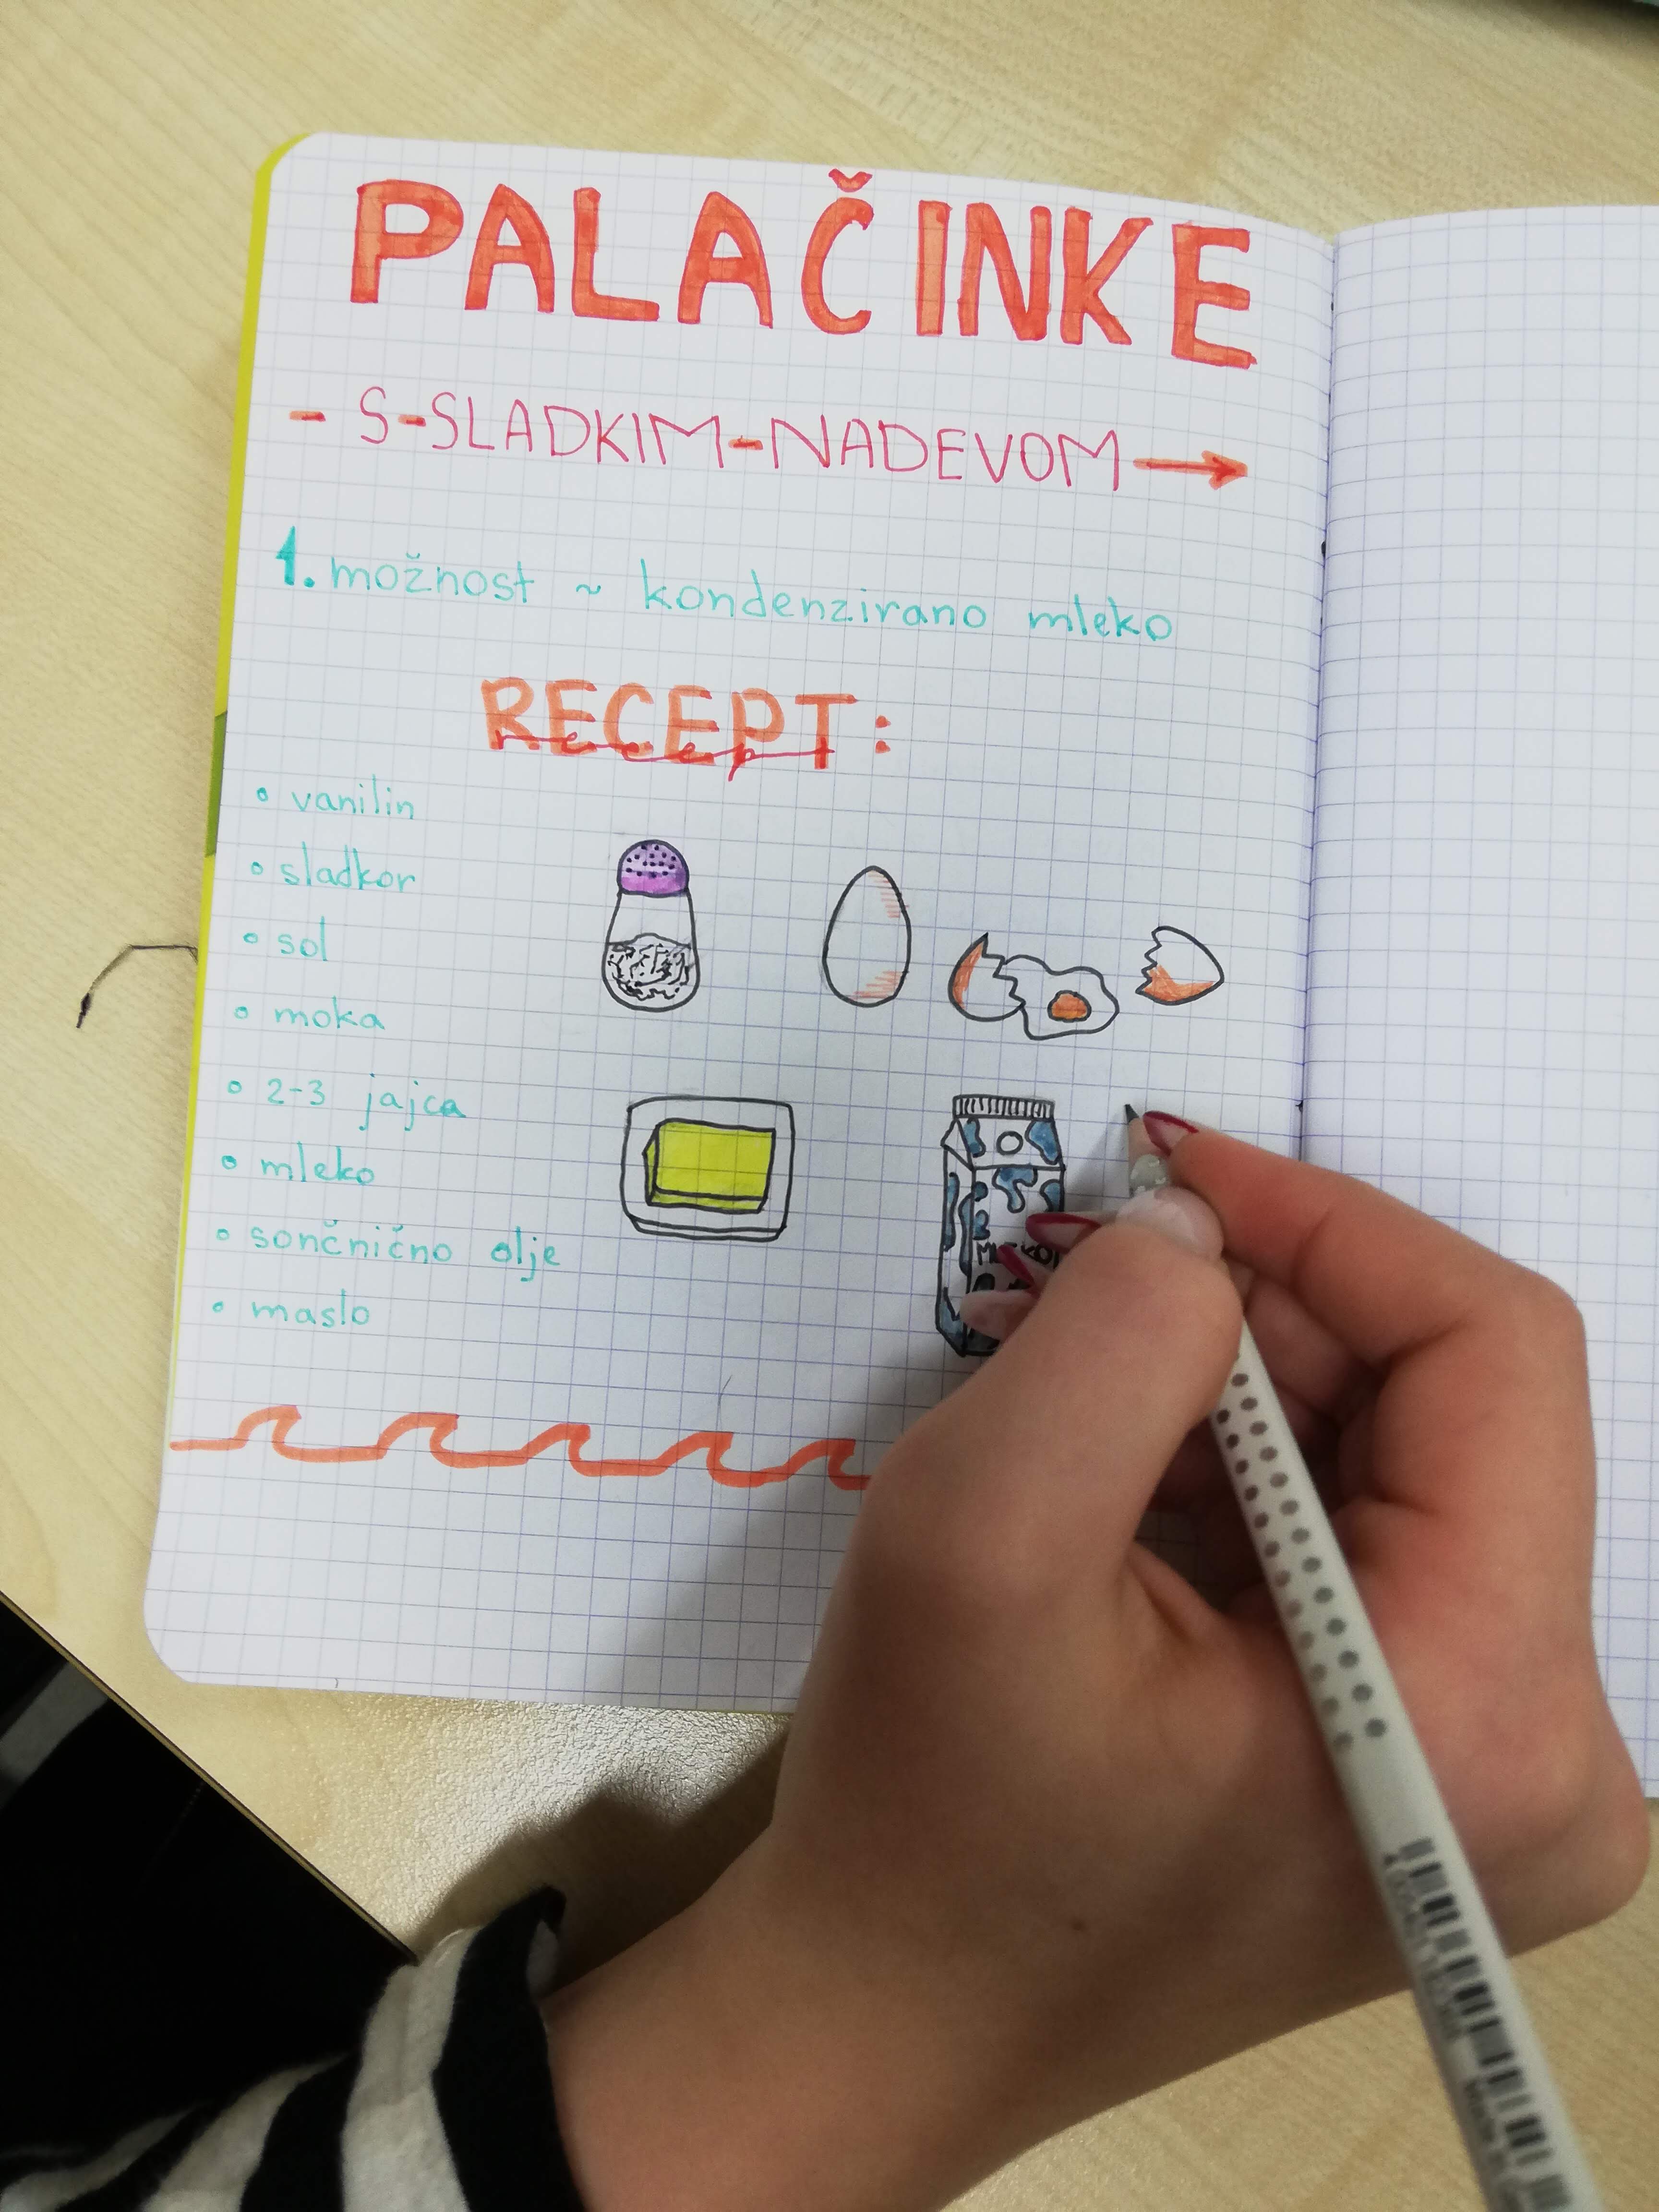 PALAČINKE
- S-SLADKIM-NADEVOM→
1. možnost ~ kondenzirano mleko
RECEPT:
recept
• vanilin
• sladkor
• sol
• moka
• 2-3 jajca
• mleko
• sončnično olje
• maslo